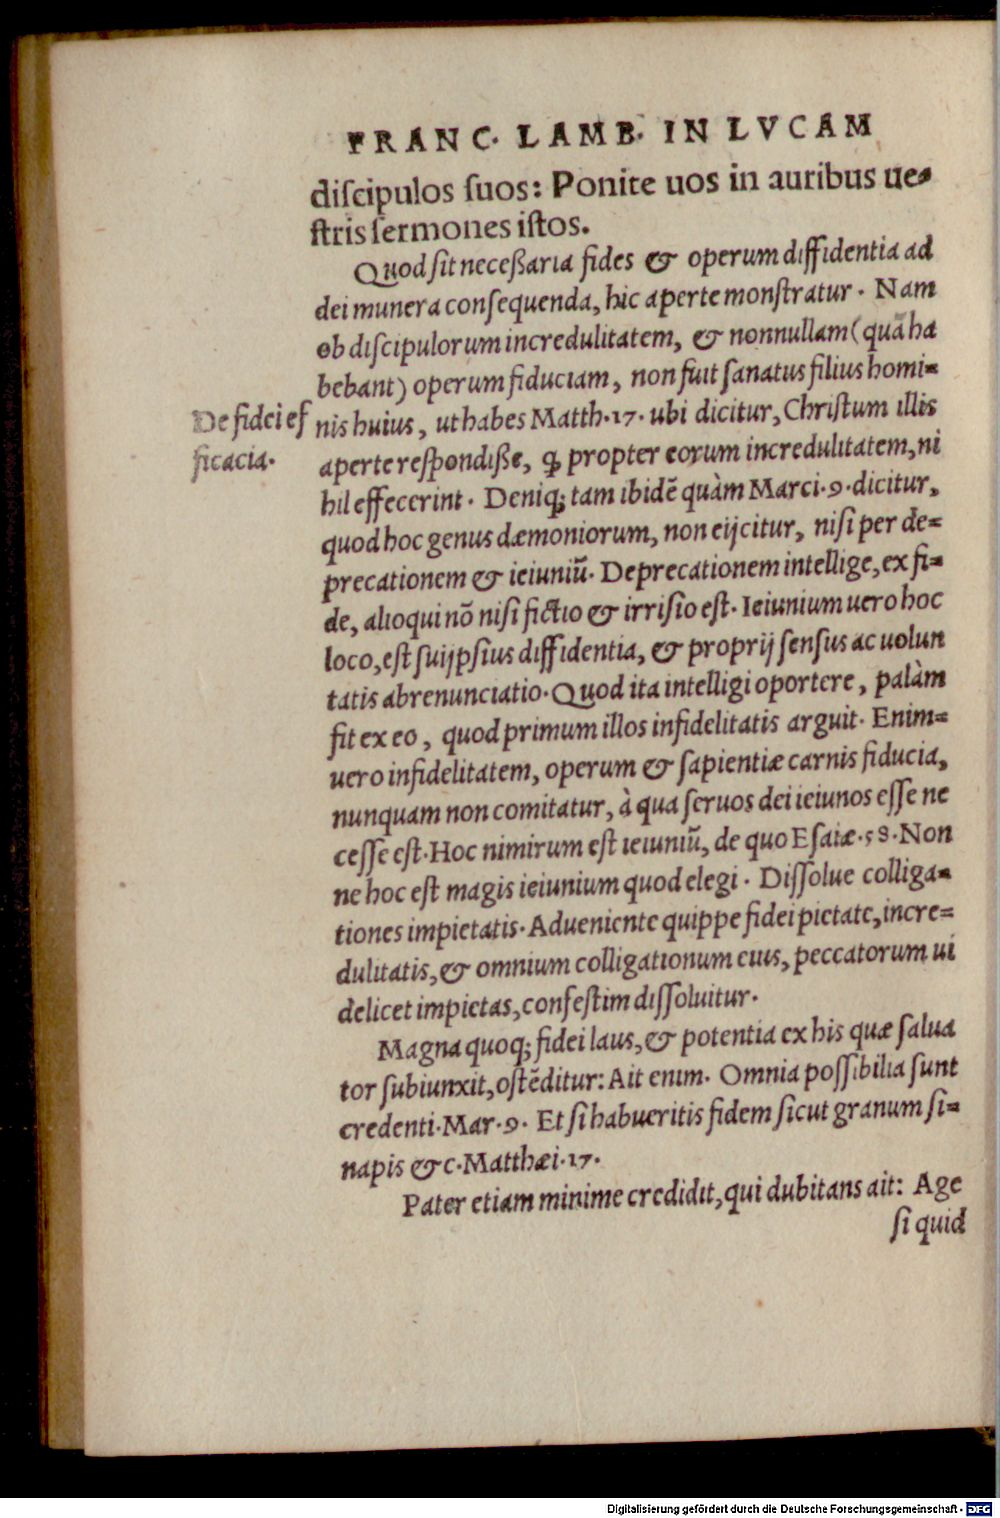 FRANC. LAMB. IN LVCAM
diſcipulos ſuos: Ponite uos in auribus ue-
ſtris ſermones iſtos.
Quod ſit neceßaria fides & operum diffidentia ad
dei munera conſequenda, hic aperte monſtratur. Nam
ob diſcipulorum incredulitatem, & nonnullam (quã ha
bebant) operum fiduciam, non fuit ſanatus filius homi-
nis huius, ut habes Matth.17. ubi dicitur, Chriſtum illis
aperte reſpondiße, ꝙ propter eorum incredulitatem, ni
hil effecerint. Deniq; tam ibidẽ quàm Marci.9.dicitur,
quod hoc genus dæmoniorum, non eijcitur, niſi per de-
precationem & ieiuniũ. Deprecationem intellige, ex fi-
de, alioqui nõ niſi fictio & irriſio eſt. Ieiunium uero hoc
loco, eſt ſuijpſius diffidentia, & proprij ſenſus ac uolun
tatis abrenunciatio. Quod ita intelligi oportere, palàm
fit ex eo, quod primum illos infidelitatis arguit. Enim-
uero infidelitatem, operum & ſapientiæ carnis fiducia,
nunquam non comitatur, à qua ſeruos dei ieiunos eſſe ne
ceſſe eſt. Hoc nimirum eſt ieiuniũ, de quo Eſaiæ.58. Non
ne hoc eſt magis ieiunium quod elegi. Diſſolue colliga-
tiones impietatis. Adueniente quippe fidei pietate, incre-
dulitatis, & omnium colligationum eius, peccatorum ui
delicet impietas, confeſtim diſſoluitur.
Magna quoq; fidei laus, & potentia ex his quæ ſalua
tor ſubiunxit, oſtẽditur: Ait enim. Omnia poſſibilia ſunt
credenti. Mar.9. Et ſi habueritis fidem ſicut granum ſi-
napis &c. Matthæi.17.
Pater etiam minime credidit, qui dubitans ait: Age
ſi quid
De fidei ef
ficacia.
Digitalisierung gefördert durch die Deutsche Forschungsgemeinschaft - DFG